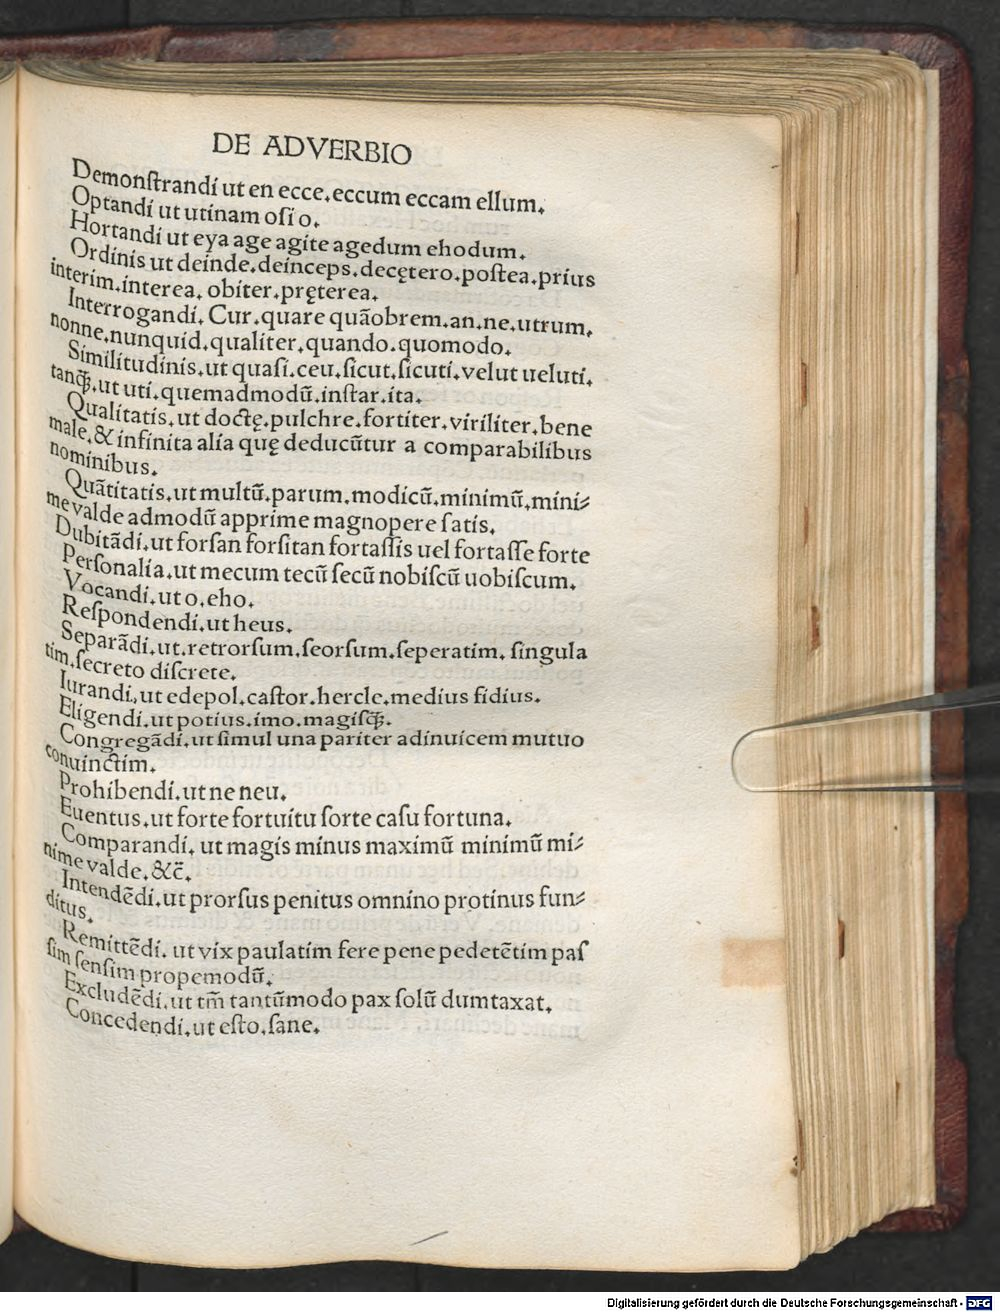 DE ADVERBIO
Demonſtrandi ut en ecce.eccum eccam ellum.
Optandi ut utinam oſi o.
Hortandi ut eya age agite agedum ehodum.
Ordinis ut deinde.deinceps.decętero.poſtea.prius
interim.interea. obiter.pręterea.
Interrogandi. Cur.quare quãobrem.an.ne.utrum.
nonne.nunquid.qualiter.quando.quomodo.
Similitudinis.ut quaſi.ceu.ſicut.ſicuti.velut ueluti.
tanq̃.ut uti.quemadmodũ.inſtar.ita.
Qualitatis.ut doctę.pulchre.fortiter.viriliter.bene
male.& infinita alia quę deducũtur a comparabilibus
nominibus.
Quãtitatis.ut multũ.parum.modicũ.minimũ.mini⸗
me valde admodũ apprime magnopere ſatis.
Dubitãdi.ut forſan forſitan fortaſſis uel fortaſſe forte
Perſonalia.ut mecum tecũ ſecũ nobiſcũ uobiſcum.
Vocandi.ut o.eho.
Reſpondendi.ut heus.
Separãdi.ut.retrorſum.ſeorſum.ſeperatim. ſingula
tim.ſecreto diſcrete.
Iurandi.ut edepol.caſtor.hercle.medius fidius.
Eligendi.ut potius.imo.magiſq̃.
Congregãdi.ut ſimul una pariter adinuicem mutuo
conuinctim.
Prohibendi.ut ne neu.
Euentus.ut forte fortuitu ſorte caſu fortuna.
Comparandi. ut magis minus maximũ minimũ mi⸗
nime valde.&c̃.
Intendẽdi.ut prorſus penitus omnino protinus fun⸗
ditus.
Remittẽdi. ut vix paulatim fere pene pedetẽtim paſ
ſim ſenſim propemodũ.
Excludẽdi.ut tm̃ tantũmodo pax ſolũ dumtaxat.
Concedendi.ut eſto.ſane.
Digitalisierung gefördert durch die Deutsche Forschungsgemeinschaft - DFG